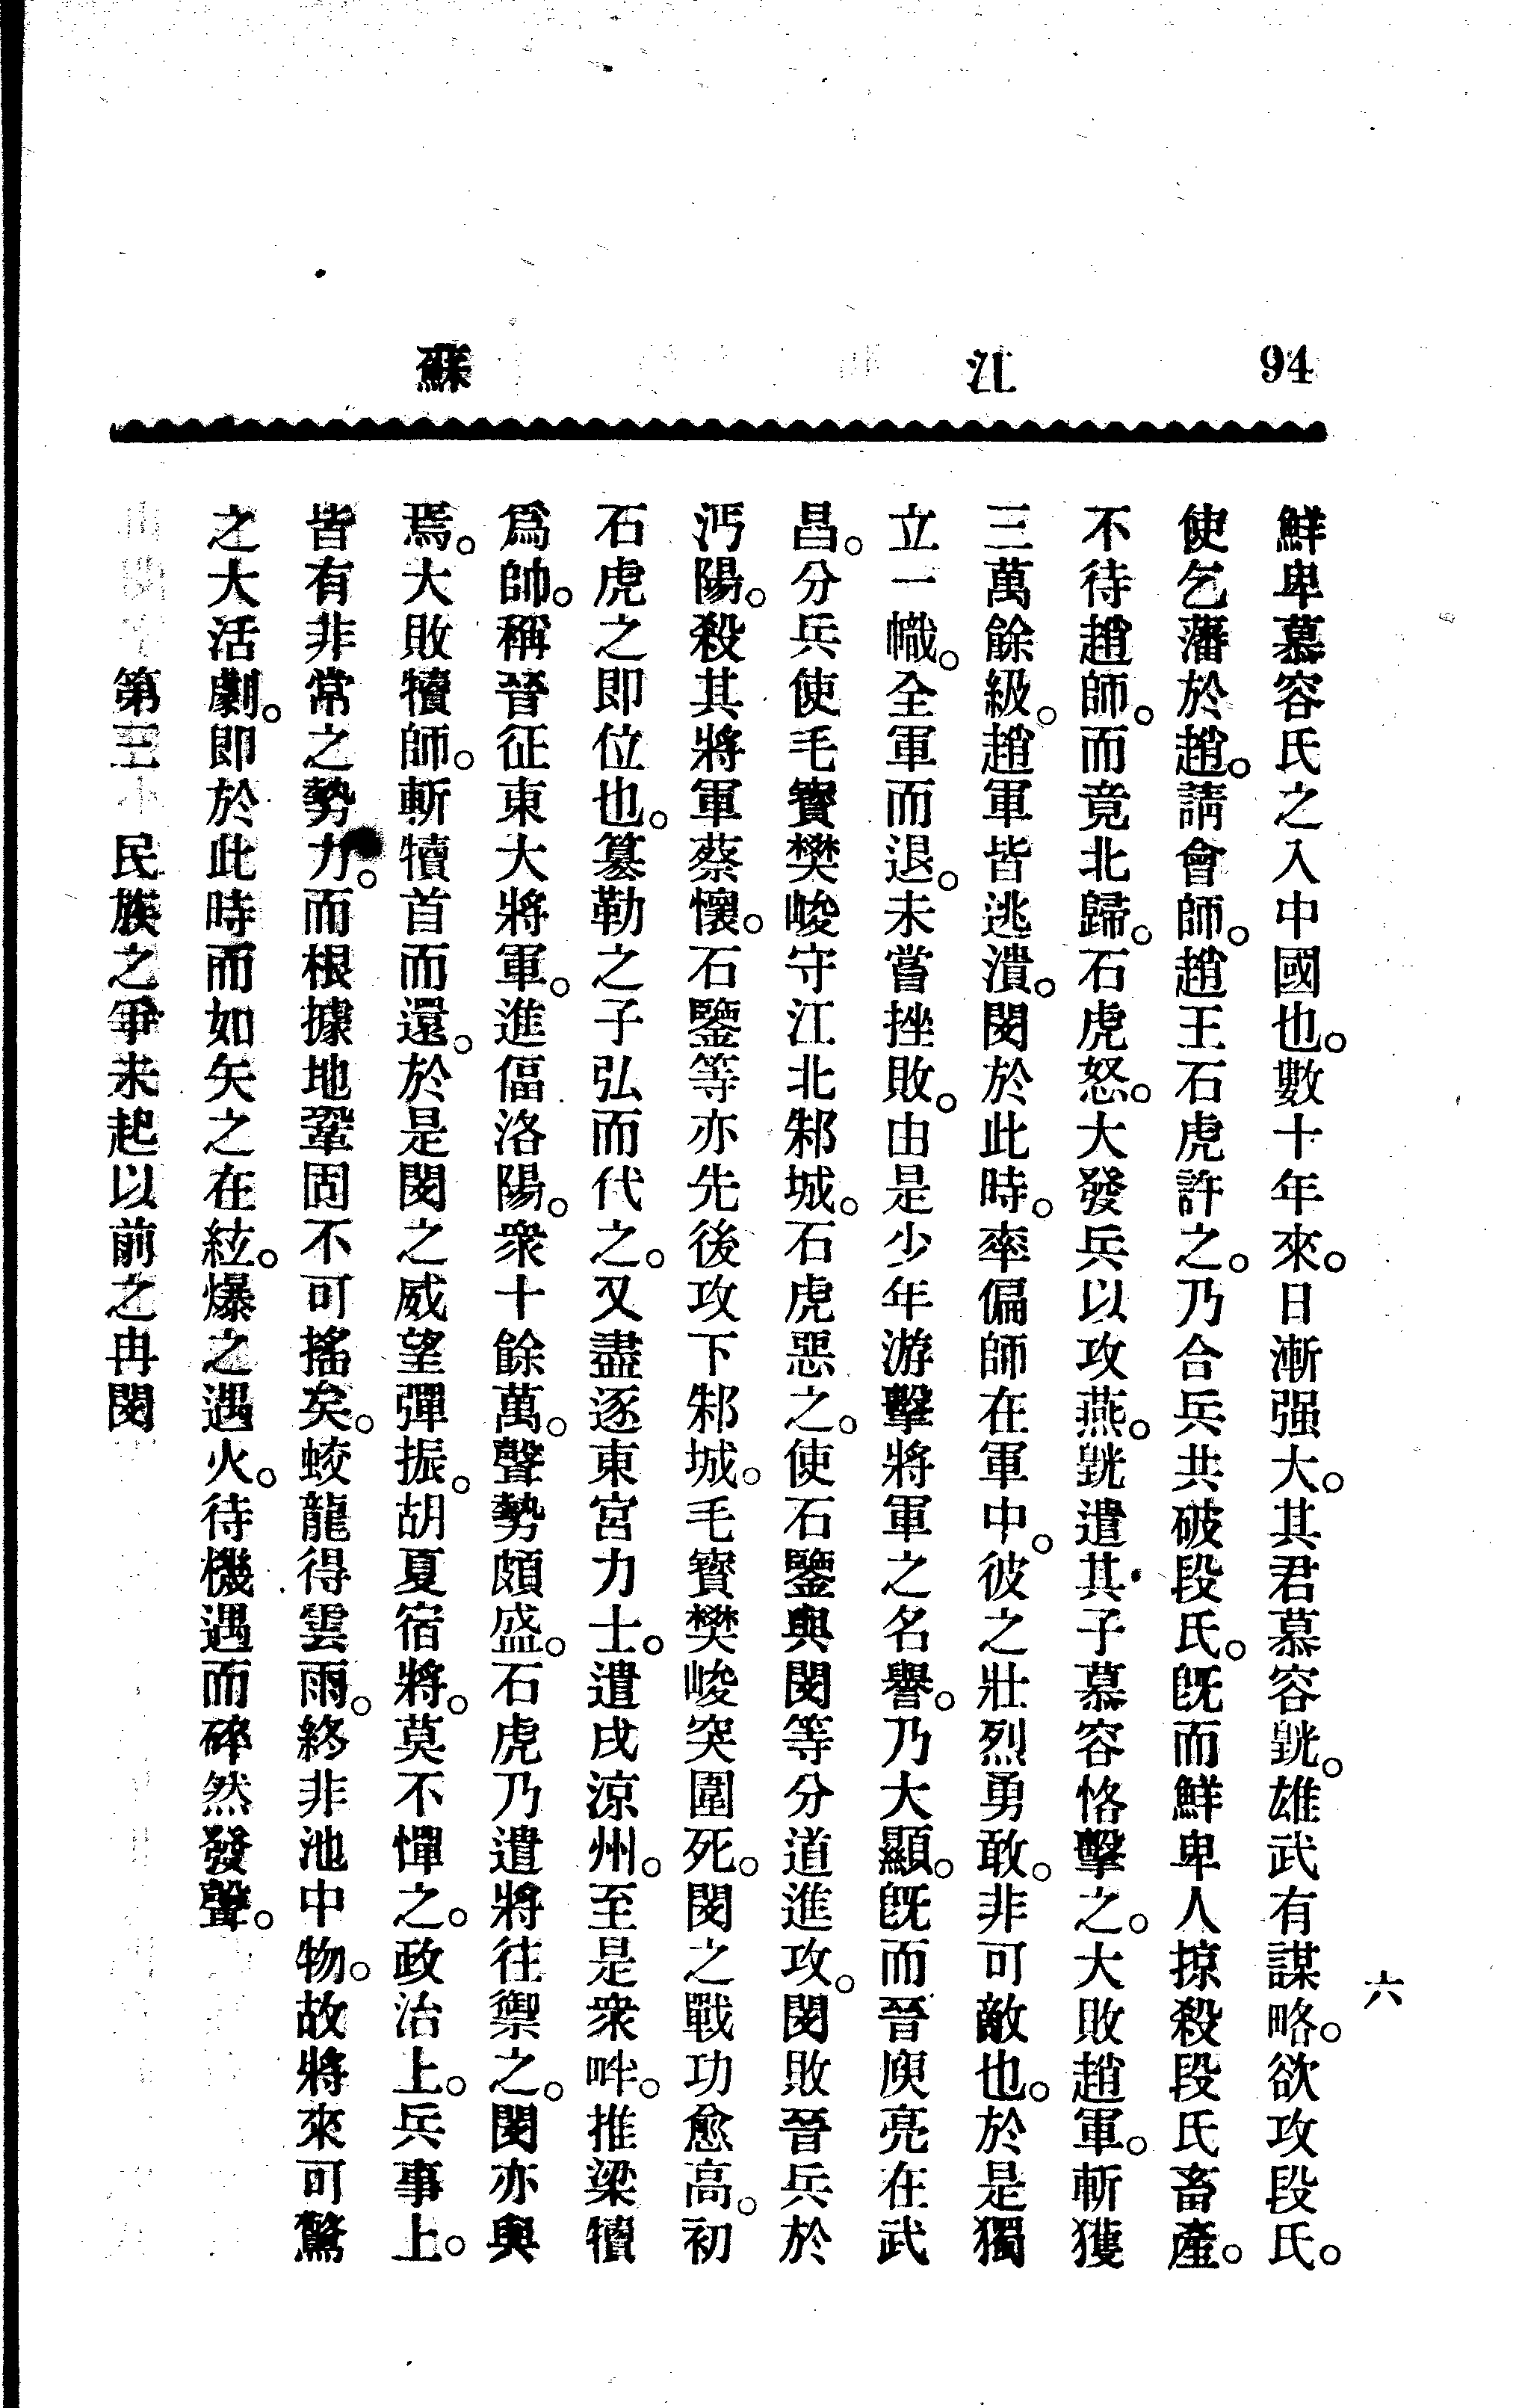 94
江蘇
六
鮮卑慕容氏之入中國也。數十年來。日漸强大。其君慕容皝。雄武有謀略。欲攻段氏。
使乞藩於趙。請會師。趙王石虎許之。乃合兵共破段氏。旣而鮮卑人掠殺段氏畜產。
不待趙師。而竟北歸。石虎怒。大發兵以攻燕。皝遣其子慕容恪擊之。大敗趙軍。斬獲
三萬餘級。趙軍皆逃潰。閔於此時。率偏師在軍中。彼之壯烈勇敢。非可敵也。於是獨
立一幟。全軍而退。未嘗挫敗。由是少年游擊將軍之名譽。乃大顯。旣而晉庾亮在武
昌。分兵使毛寶樊峻守江北邾城。石虎惡之。使石鑒與閔等分道進攻。閔敗晉兵於
沔陽。殺其將軍蔡懷。石鑒等亦先後攻下邾城。毛寶樊峻突圍死。閔之戰功愈高。初
石虎之卽位也。簒勒之子弘而代之。又盡逐東宮力士。遣戍涼州。至是衆畔。推梁犢
爲帥。稱晉征東大將軍。進偪洛陽。衆十餘萬。聲勢頗盛。石虎乃遣將往禦之。閔亦與
焉。大敗犢師。斬犢首而還。於是閔之威望彈振。胡夏宿將。莫不憚之。政治上。兵事上。
皆有非常之勢力。而根據地鞏固不可搖矣。蛟龍得雲雨。終非池中物。故將來可驚
之大活劇。卽於此時而如矢之在絃。爆之遇火。待機遇而碎然發聲。
第三　民族之爭未起以前之冉閔